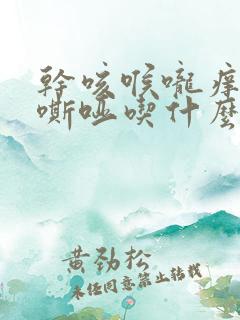 幹咳喉嚨痒
嘶啞喫什麽
黄劲松
未经同意禁止转载